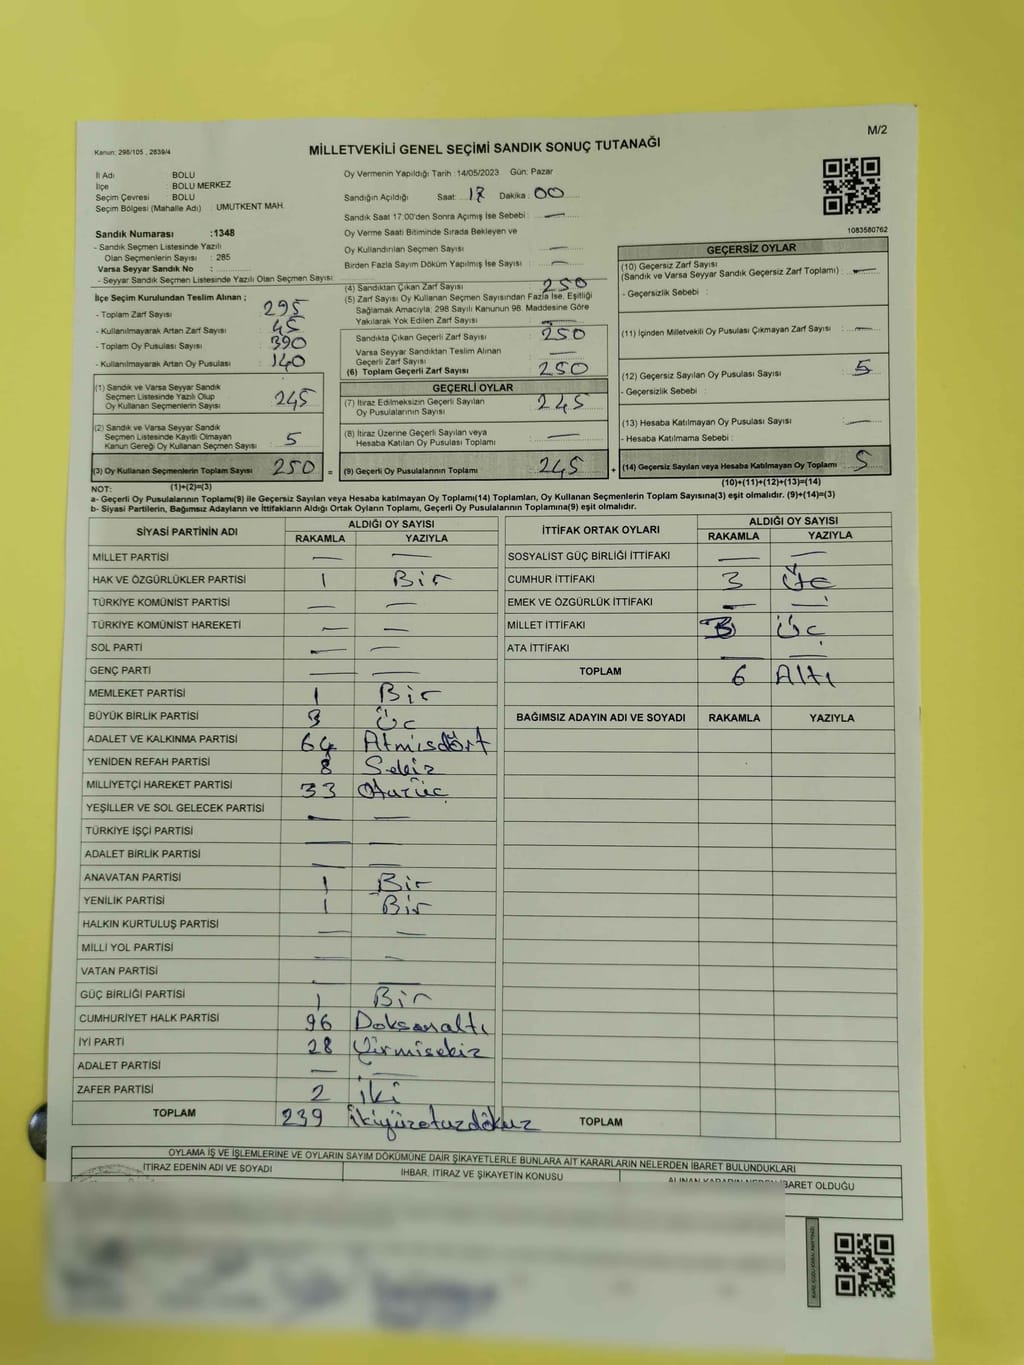 M/2
Kanun: 298/105 , 2839/4
MİLLETVEKİLİ GENEL SEÇİMİ SANDIK SONUÇ TUTANAĞI
İl Adı BOLU
İlçe : BOLU MERKEZ
Seçim Çevresi BOLU
Seçim Bölgesi (Mahalle Adı) : UMUTKENT MAH.
Oy Vermenin Yapıldığı Tarih :14/05/2023 Gün: Pazar
Sandığın Açıldığı Saat: 17 Dakika : 00
Sandık Saat 17:00'den Sonra Açımış İse Sebebi : —
Oy Verme Saati Bitiminde Sırada Bekleyen ve
Oy Kullandırılan Seçmen Sayısı —
Birden Fazla Sayım Döküm Yapılmış İse Sayısı : —
1083580762
Sandık Numarası :1348
- Sandık Seçmen Listesinde Yazılı
Olan Seçmenlerin Sayısı : 285
Varsa Seyyar Sandık No :
- Seyyar Sandık Seçmen Listesinde Yazılı Olan Seçmen Sayısı :
İlçe Seçim Kurulundan Teslim Alınan ;
- Toplam Zarf Sayısı : 295
- Kullanılmayarak Artan Zarf Sayısı : 45
- Toplam Oy Pusulası Sayısı : 390
- Kullanılmayarak Artan Oy Pusulası : 140
(1) Sandık ve Varsa Seyyar Sandık
Seçmen Listesinde Yazılı Olup
Oy Kullanan Seçmenlerin Sayısı : 245
(2) Sandık ve Varsa Seyyar Sandık
Seçmen Listesinde Kayıtlı Olmayan
Kanun Gereği Oy Kullanan Seçmen Sayısı : 5
(3) Oy Kullanan Seçmenlerin Toplam Sayısı : 250 =
(1)+(2)=(3)
(4) Sandıktan Çıkan Zarf Sayısı : 250
(5) Zarf Sayısı Oy Kullanan Seçmen Sayısından Fazla İse, Eşitliği
Sağlamak Amacıyla; 298 Sayılı Kanunun 98. Maddesine Göre
Yakılarak Yok Edilen Zarf Sayısı : —
Sandıkta Çıkan Geçerli Zarf Sayısı : 250
Varsa Seyyar Sandıktan Teslim Alınan
Geçerli Zarf Sayısı : —
(6) Toplam Geçerli Zarf Sayısı : 250
GEÇERLİ OYLAR
(7) İtiraz Edilmeksizin Geçerli Sayılan
Oy Pusulalarının Sayısı : 245
(8) İtiraz Üzerine Geçerli Sayılan veya
Hesaba Katılan Oy Pusulası Toplamı : —
(9) Geçerli Oy Pusulalarının Toplamı : 245 +
GEÇERSİZ OYLAR
(10) Geçersiz Zarf Sayısı
(Sandık ve Varsa Seyyar Sandık Geçersiz Zarf Toplamı) : —
- Geçersizlik Sebebi :
(11) İçinden Milletvekili Oy Pusulası Çıkmayan Zarf Sayısı : —
(12) Geçersiz Sayılan Oy Pusulası Sayısı : 5
- Geçersizlik Sebebi :
(13) Hesaba Katılmayan Oy Pusulası Sayısı : —
- Hesaba Katılmama Sebebi :
(14) Geçersiz Sayılan veya Hesaba Katılmayan Oy Toplamı : 5
(10)+(11)+(12)+(13)=(14)
NOT:
a- Geçerli Oy Pusulalarının Toplamı(9) ile Geçersiz Sayılan veya Hesaba katılmayan Oy Toplamı(14) Toplamları, Oy Kullanan Seçmenlerin Toplam Sayısına(3) eşit olmalıdır. (9)+(14)=(3)
b- Siyasi Partilerin, Bağımsız Adayların ve İttifakların Aldığı Ortak Oyların Toplamı, Geçerli Oy Pusulalarının Toplamına(9) eşit olmalıdır.
SİYASİ PARTİNİN ADI ALDIĞI OY SAYISI
RAKAMLA YAZIYLA
MİLLET PARTİSİ — —
HAK VE ÖZGÜRLÜKLER PARTİSİ 1 Bir
TÜRKİYE KOMÜNİST PARTİSİ — —
TÜRKİYE KOMÜNİST HAREKETİ — —
SOL PARTİ — —
GENÇ PARTİ — —
MEMLEKET PARTİSİ 1 Bir
BÜYÜK BİRLİK PARTİSİ 3 Üç
ADALET VE KALKINMA PARTİSİ 64 Atmışdört
YENİDEN REFAH PARTİSİ 8 Sekiz
MİLLİYETÇİ HAREKET PARTİSİ 33 Otuzüç
YEŞİLLER VE SOL GELECEK PARTİSİ — —
TÜRKİYE İŞÇİ PARTİSİ — —
ADALET BİRLİK PARTİSİ — —
ANAVATAN PARTİSİ 1 Bir
YENİLİK PARTİSİ 1 Bir
HALKIN KURTULUŞ PARTİSİ — —
MİLLİ YOL PARTİSİ — —
VATAN PARTİSİ — —
GÜÇ BİRLİĞİ PARTİSİ 1 Bir
CUMHURİYET HALK PARTİSİ 96 Doksanaltı
İYİ PARTİ 28 Yirmisekiz
ADALET PARTİSİ — —
ZAFER PARTİSİ 2 İki
TOPLAM 239 İkiyüzotuzdokuz
İTTİFAK ORTAK OYLARI ALDIĞI OY SAYISI
RAKAMLA YAZIYLA
SOSYALİST GÜÇ BİRLİĞİ İTTİFAKI — —
CUMHUR İTTİFAKI 3 Üç
EMEK VE ÖZGÜRLÜK İTTİFAKI — —
MİLLET İTTİFAKI 3 Üç
ATA İTTİFAKI — —
TOPLAM 6 Altı
BAĞIMSIZ ADAYIN ADI VE SOYADI RAKAMLA YAZIYLA
TOPLAM
OYLAMA İŞ VE İŞLEMLERİNE VE OYLARIN SAYIM DÖKÜMÜNE DAİR ŞİKAYETLERLE BUNLARA AİT KARARLARIN NELERDEN İBARET BULUNDUKLARI
İTİRAZ EDENİN ADI VE SOYADI İHBAR, İTİRAZ VE ŞİKAYETİN KONUSU ALINAN KARARIN NEDEN İBARET OLDUĞU